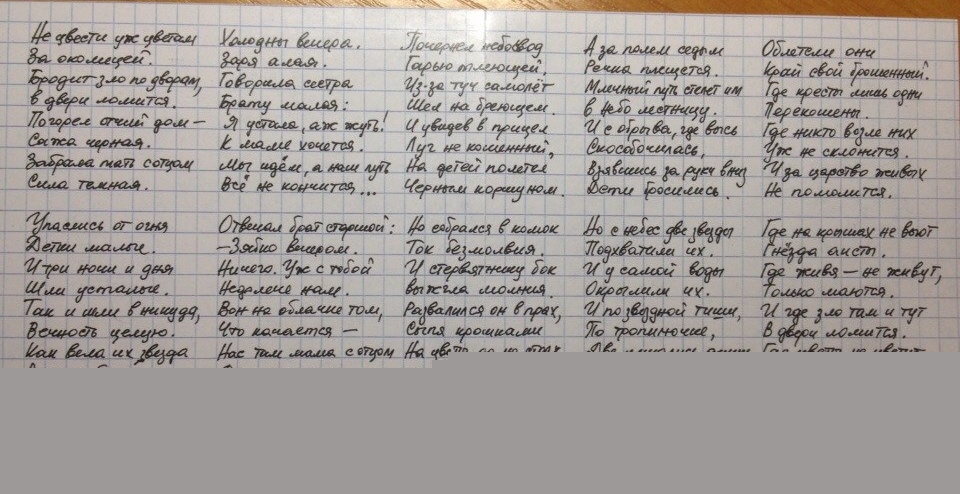 Не цвести уж цветам
За околицей.
Бродит зло по дворам,
в двери ломится.
Погорел отчий дом –
Сажа черная.
Забрала мать с отцом
Сила темная.
Упаслись от огня
Детки малые.
И три ночи и дня
Шли усталые.
Так и шли в никуда,
Вечность целую.
Как вела их звезда
Холодны вечера.
Заря алая.
Говорила сестра
Брату малая:
Я устала, аж жуть!
К маме хочется.
Мы идём, а наш путь
Всё не кончится...
Отвечал брат старшой:
– Зябко вечером.
Ничего. Уж с тобой
Недалече нам.
Вон на облаке том,
Что качается –
Нас там мама с отцом
Почернел небосвод
Гарью тлеющей.
Из-за туч самолёт
Шел на бреющем.
И увидев в прицел
Луг не кошенный,
На детей полетел
Черным коршуном.
Но собрался в комок
Ток безмолвия.
И стервятнику бок
выжгла молния.
Развалился он в прах,
Сыпя крошками
На цветы
А за полем седым
Речка плещется.
Млечный путь стелет им
в небо лестницу.
И с обрыва, где высь
Скособочилась,
Взявшись за руки вниз
Дети бросились.
Но с небес две звезды
Подхватили их.
И у самой воды
Окрылили их.
И по звездной тиши,
По тропиночке,
Две
Облетели они
Край свой брошенный.
Где кресты лишь одни
Перекошены.
Где никто возле них
Уж не склонится.
И за царство живых
Не помолится.
Где на крышах не вьют
Гнёзда аисты.
Где живя – не живут,
Только маются.
И где зло там и тут
В двери ломится.
Где цветы не цветут